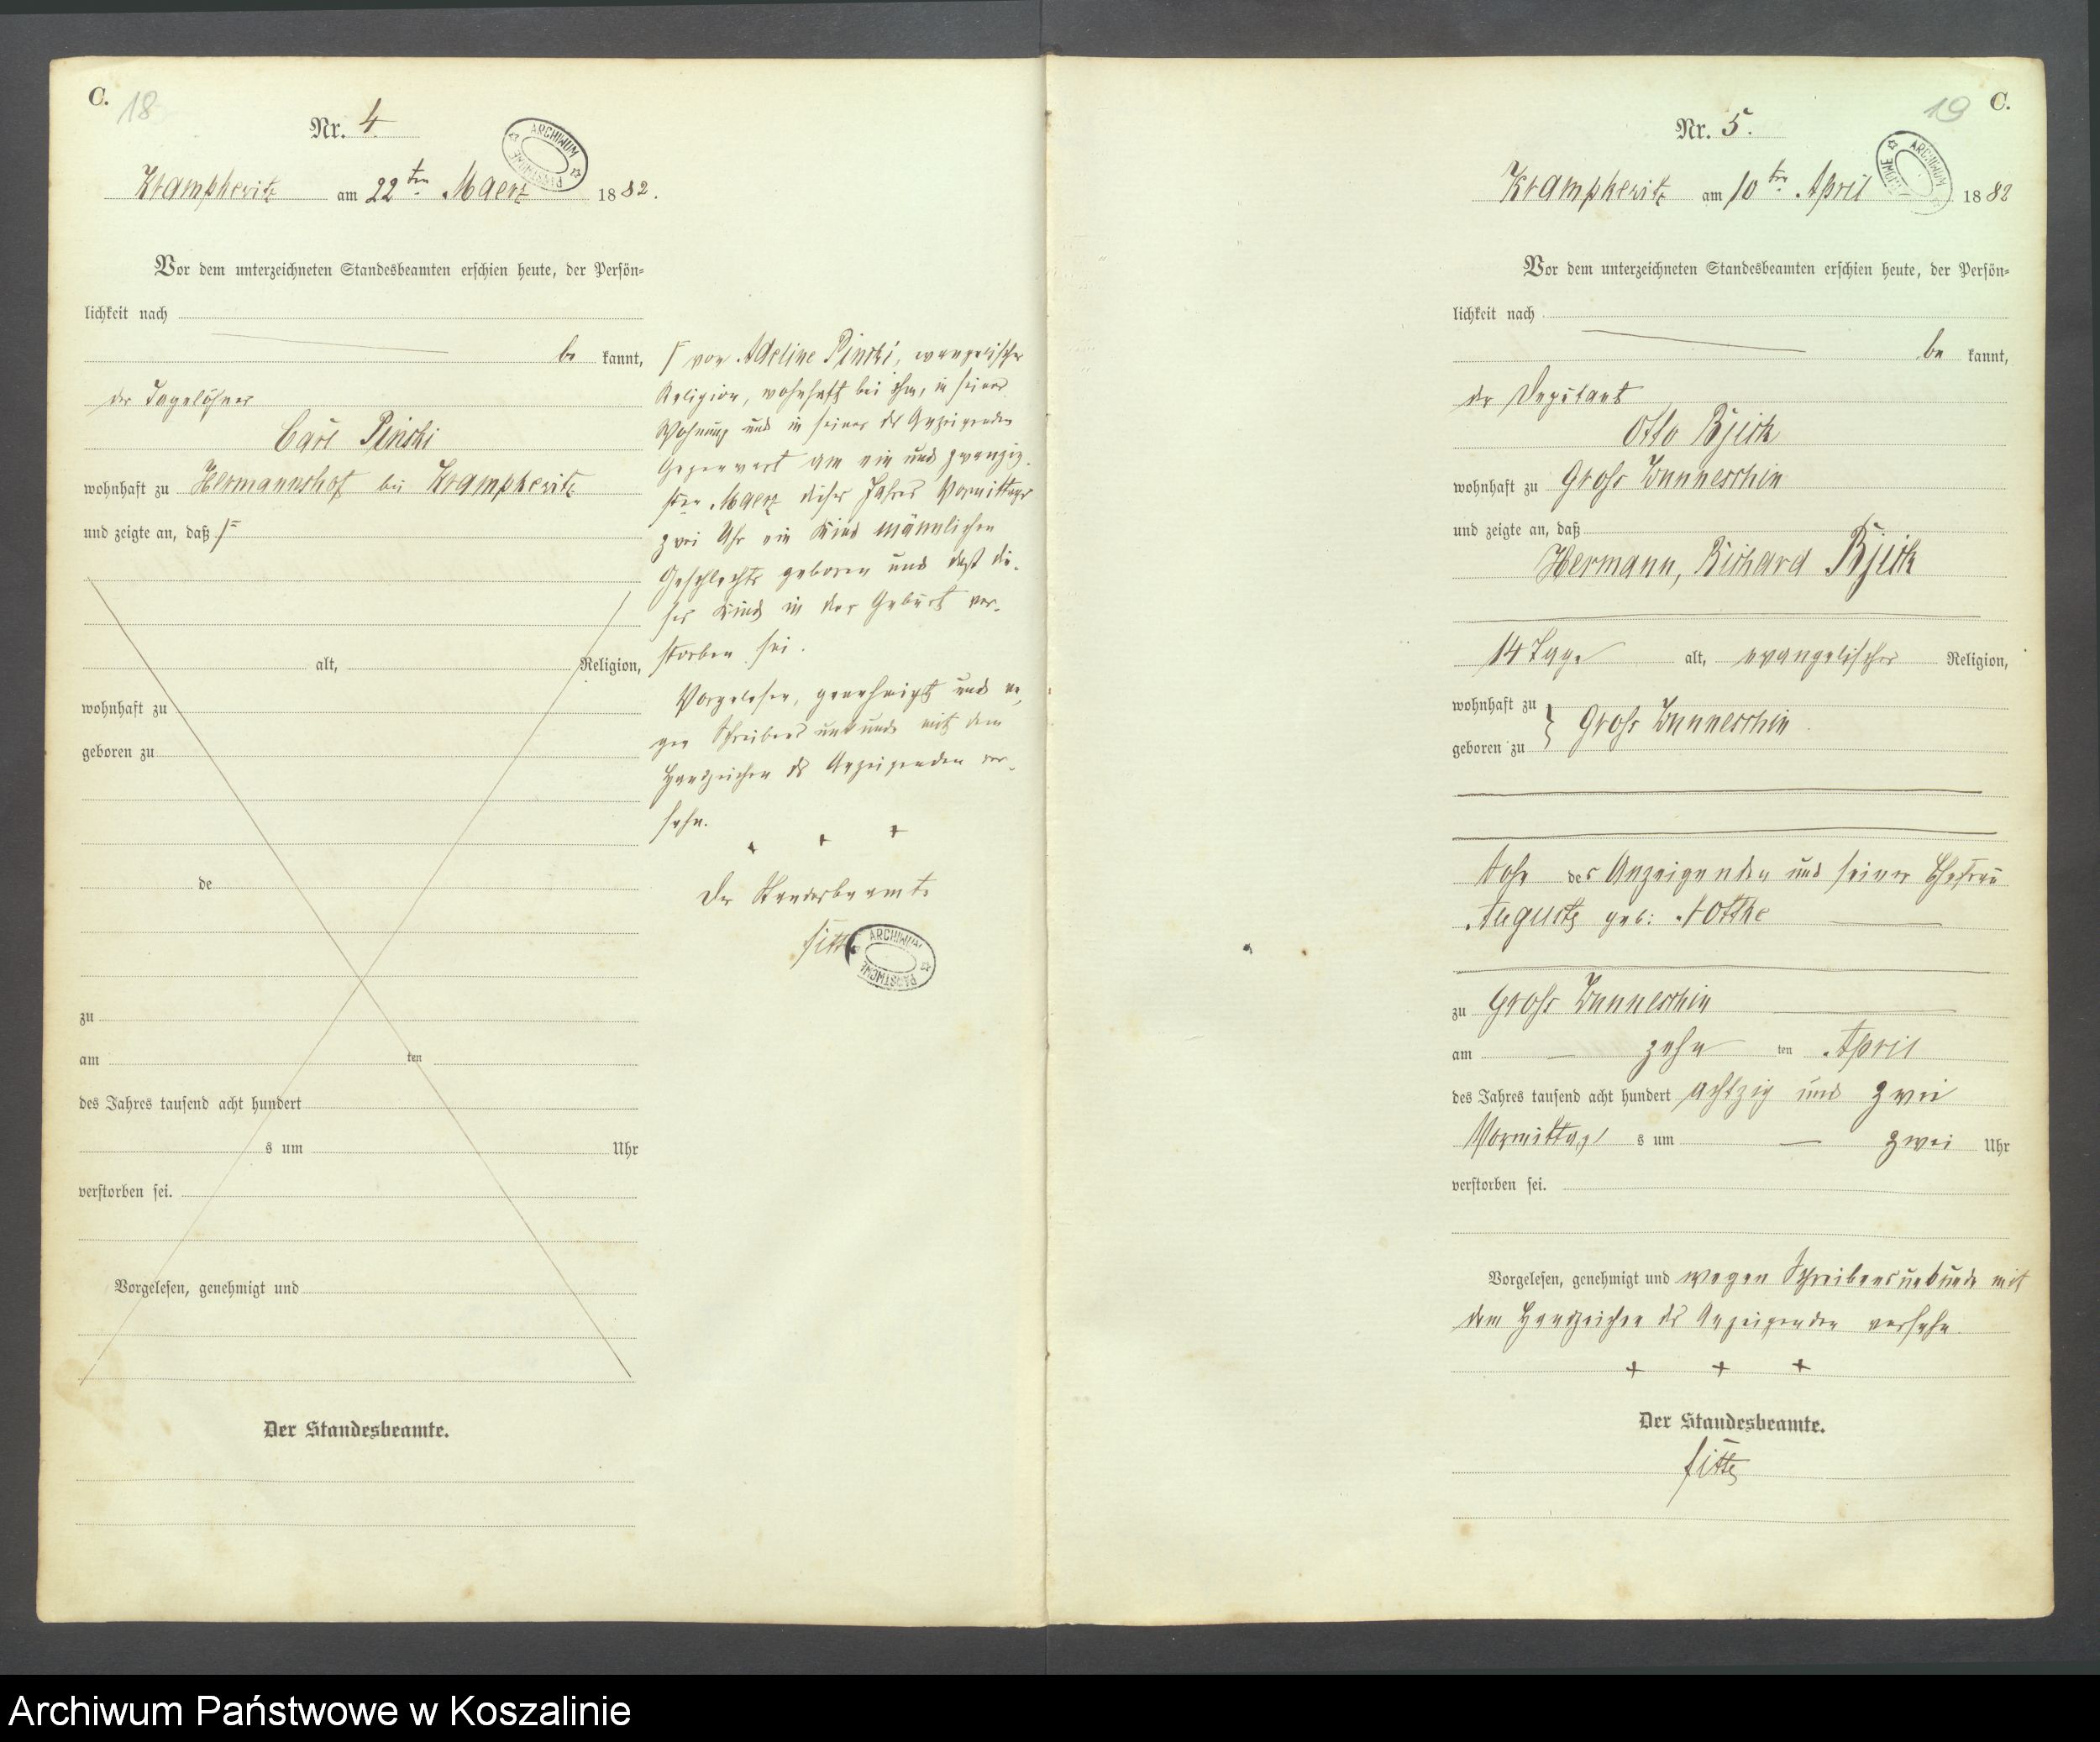 C.
18
Nr. 4
ARCHIWUM PAŃSTWOWE
Krampkewitz am 22ten Maerz 1882.
Vor dem unterzeichneten Standesbeamten erschien heute, der Persön-
lichkeit nach
be kannt,
der Tagelöhner
Carl Pinski
wohnhaft zu Hermannshof bei Krampkewitz
und zeigte an, daß
alt, Religion,
wohnhaft zu
geboren zu
de
zu
am ten
des Jahres tausend acht hundert
s um Uhr
verstorben sei.
Vorgelesen, genehmigt und
Der Standesbeamte.
von Adeline Pinski, evangelischer
Religion, wohnhaft bei ihm, in seiner
Wohnung und in seiner des Anzeigenden
Gegenwart am ein und zwanzig-
sten Maerz dieses Jahres Vormittags
zwei Uhr ein Kind männlichen
Geschlechts geboren und daß die-
ses Kind in der Geburt ver-
storben sei.
Vorgelesen, genehmigt und we-
gen Schreibensunkunde mit dem
Handzeichen des Anzeigenden ver-
sehn.
+ + +
Der Standesbeamte
ARCHIWUM PAŃSTWOWE
19
C.
Nr. 5.
ARCHIWUM
Krampkewitz am 10ten April 1882
Vor dem unterzeichneten Standesbeamten erschien heute, der Persön-
lichkeit nach
be kannt,
der Deputant
Otto
wohnhaft zu Gross Wunneschin
und zeigte an, daß
Hermann, Richard
14 Tage alt, evangelischer Religion,
wohnhaft zu } Gross Wunneschin
geboren zu
Sohn des Anzeigenden und seiner Ehefrau
Auguste geb:
zu Gross Wunneschin
am zehn ten April
des Jahres tausend acht hundert achtzig und zwei
Vormittag s um zwei Uhr
verstorben sei.
Vorgelesen, genehmigt und wegen Schreibensunkunde mit
dem Handzeichen des Anzeigenden versehn.
+ + +
Der Standesbeamte.
Archiwum Państwowe w Koszalinie